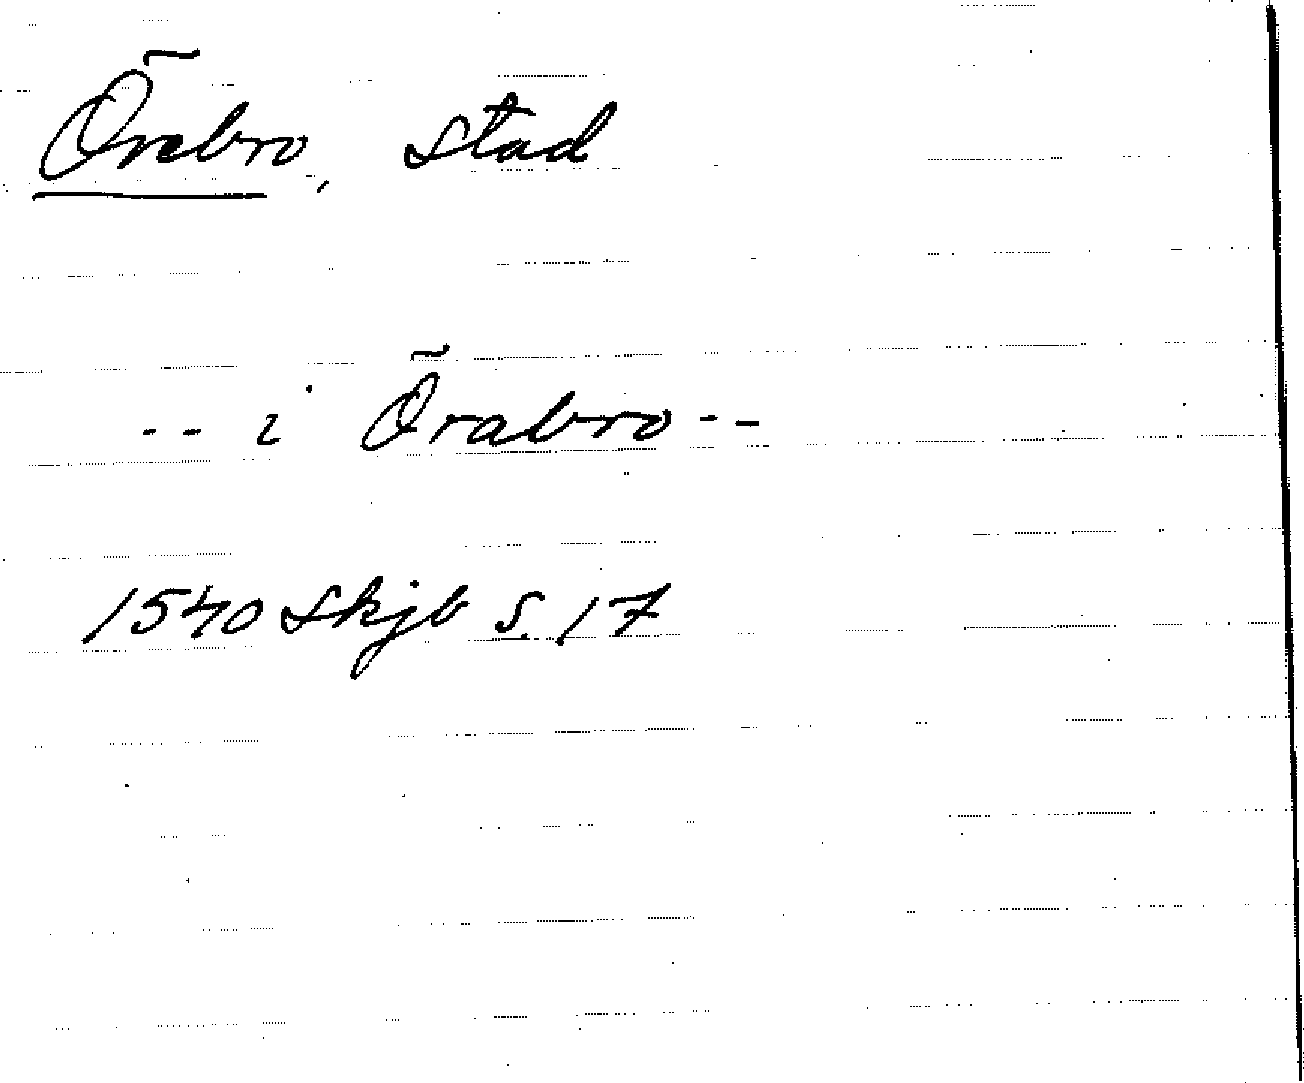 Örebro, stad
-- i Örabro --
1540 Skjb s. 17